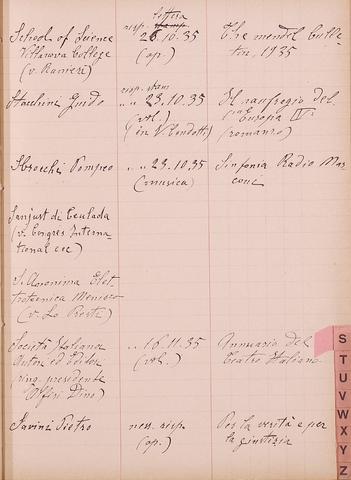 School of Science
Villanova College
(v. Ranieri)
risp. lettera
26.10.35
(op.)
The mendel bulle-
tin, 1935
Stacchini Guido
risp. stam
" " 23.10.35
(vol.)
(in V. Londotti)
Il naufragio del
"Europa IV"
(romanzo)
Sbrocchi Pompeo
" " 23.10.35
(musica)
Sinfonia Radio Mar
coni
Sanjust di Teulada
(v. Congres. Interna-
tional ecc)
S. Anonima Elet-
trotecnica
(v. Lo Presti)
Società Italiana
Autori ed Editori
(ring. presidente
Alfieri Dino)
" " 16.11.35
(vol.)
Annuario del
Teatro Italiano
Savini Pietro
ness. risp.
(op.)
Per la verità e per
la giustizia
S
T
U
V
W
X
Y
Z